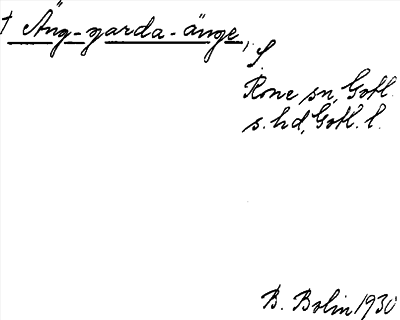 † Äng-garda-änge, S.
Rone sn, Gotl.
s. hd, Gotl. l.
B. Bolin 1930